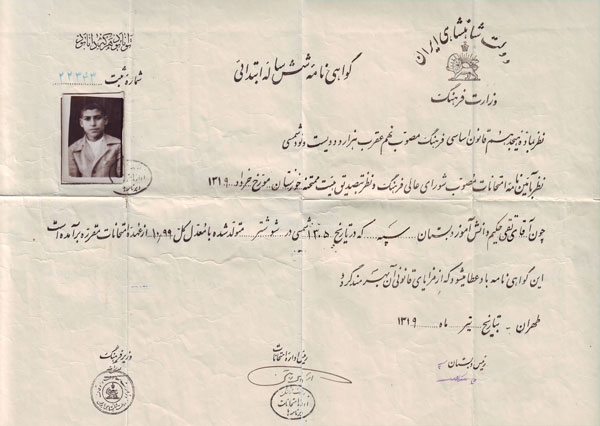 دولت شاهنشاهی ایران
وزارت فرهنگ
گواهی نامه شش ساله ابتدائی
توانا بود هر که دانا بود
شماره ثبت ۲۲۳۴۳
نظر بماده پنجم قانون اساسی فرهنگ مصوب نهم عقرب هزار و دویست و نود شمسی
نظر بآئین نامه امتحانات مصوب شورای عالی فرهنگ و نظر بتصدیق هیئت ممتحنه خوزستان مورخ خرداد ۱۳۱۹
چون آقای تقی حکیم دانش آموز دبستان سپه که در تاریخ ۱۳۰۵ شمسی در شوشتر متولد شده با معدل کل ۱۰,۹۹ از عهده امتحانات مقرره برآمده است
این گواهی نامه باو عطا میشود که از مزایای قانونی آن بهره مند گردد
طهران - بتاریخ تیر ماه ۱۳۱۹
رئیس دبستان
رئیس اداره امتحانات
وزیر فرهنگ
اداره امتحانات